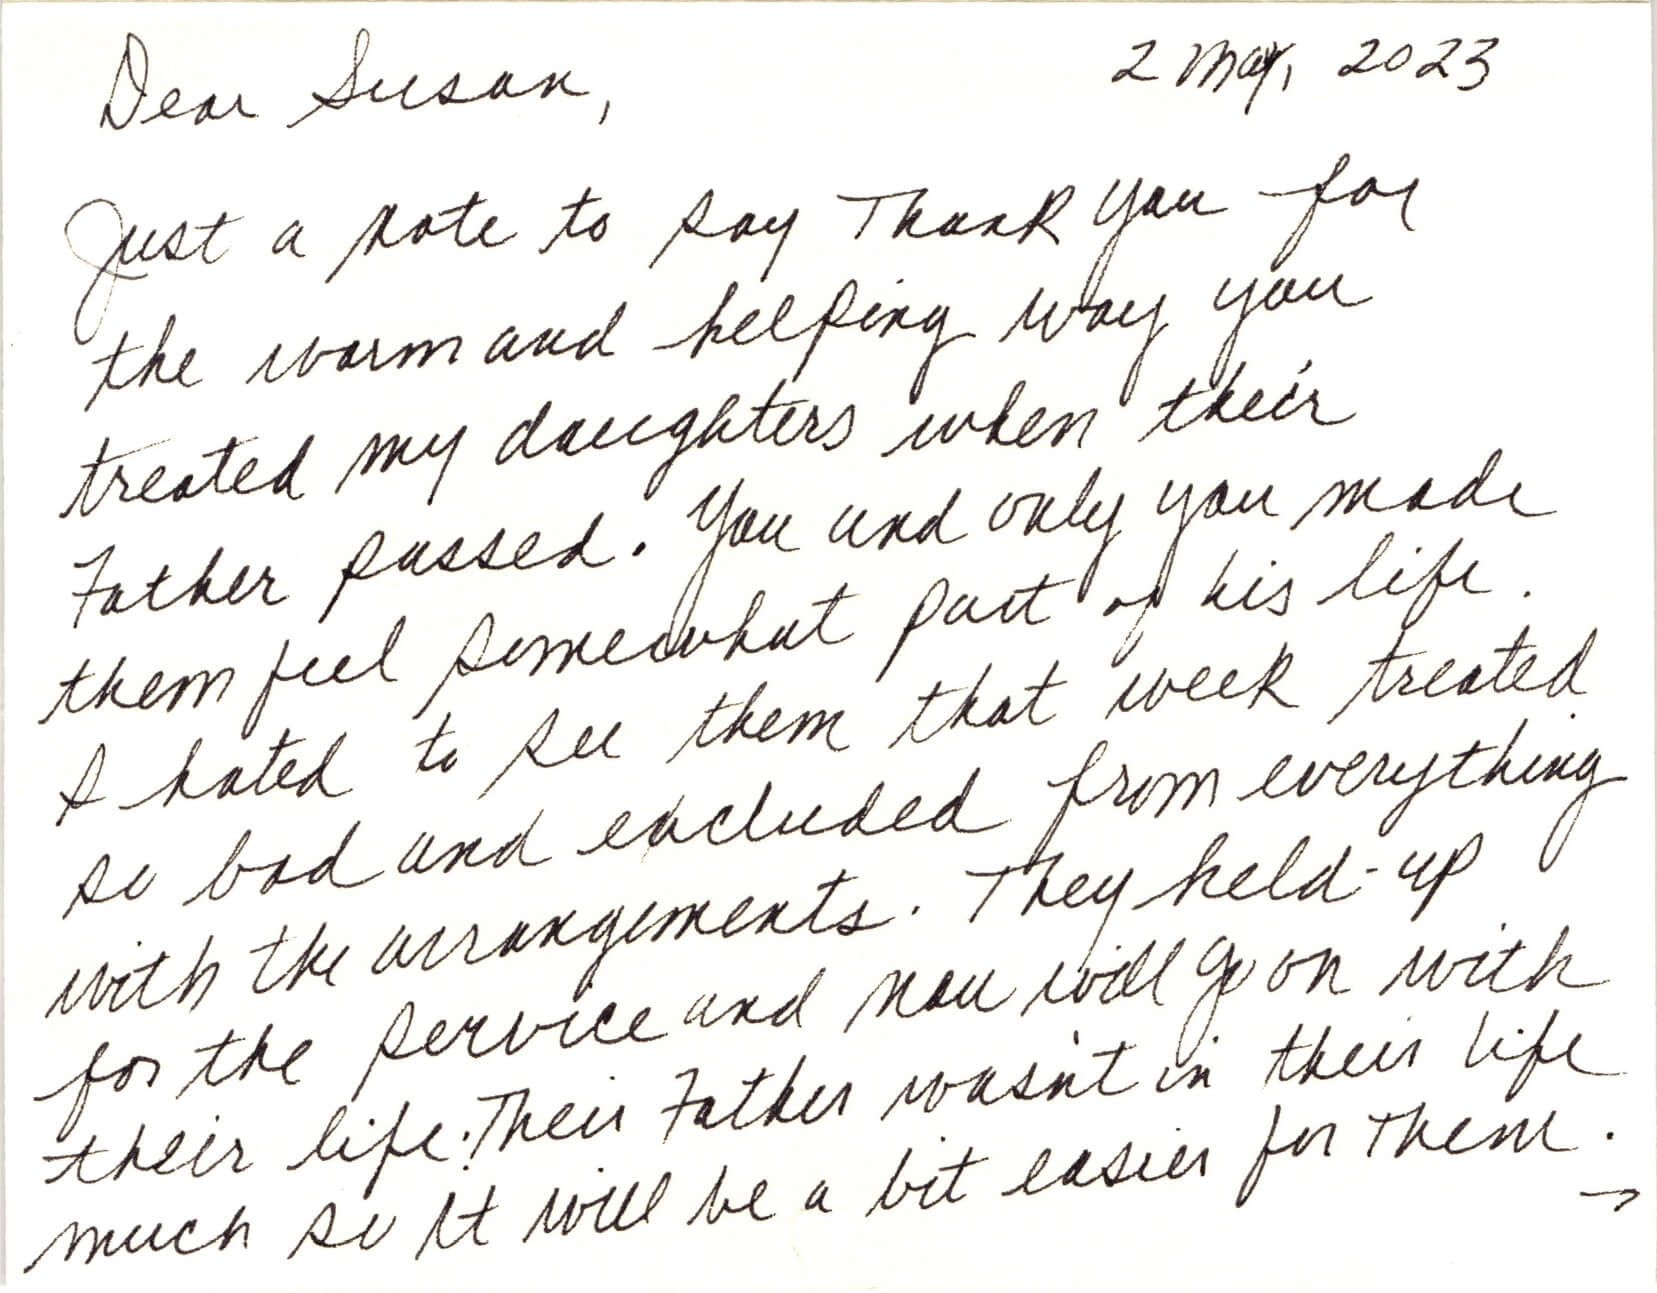 Dear Susan,
2 May, 2023
Just a note to say Thank you for
the warm and helping way you
treated my daughters when their
Father passed. You and only you made
them feel somewhat part of his life.
I hated to see them that week treated
so bad and excluded from everything
with the arrangements. They held-up
for the service and now will go on with
their life. Their Father wasn't in their life
much so it will be a bit easier for them.
→